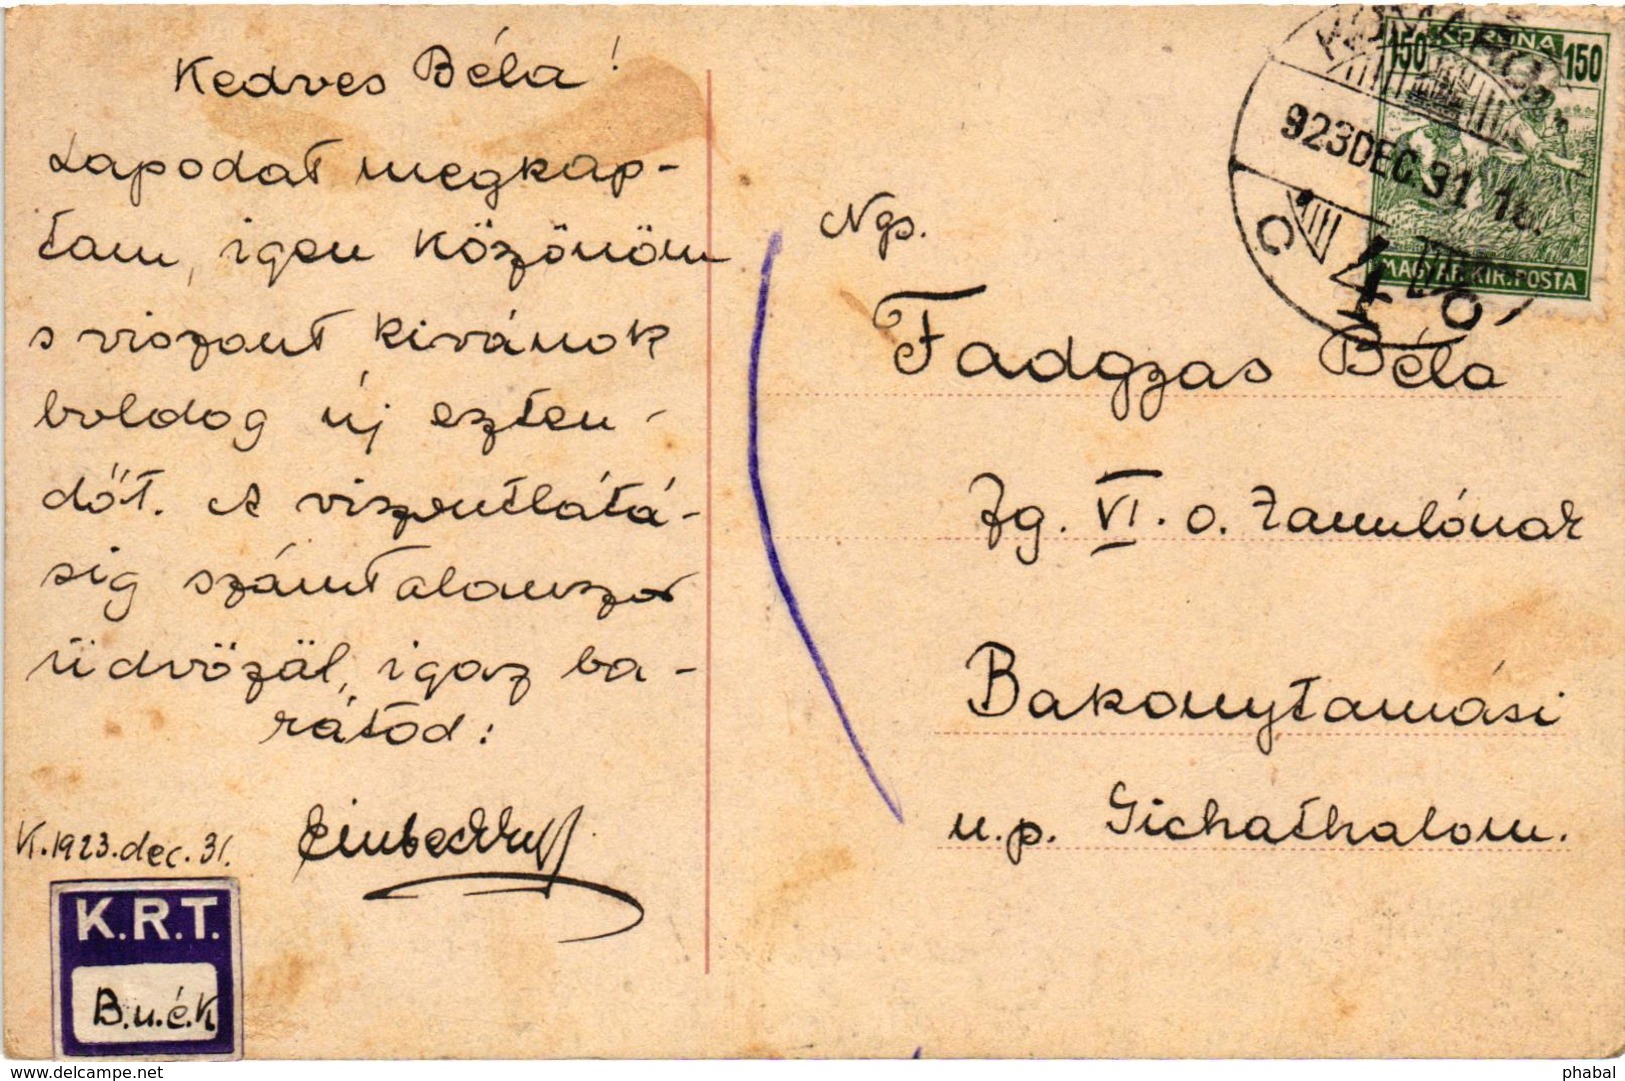 Kedves Béla!
Lapodat megkap-
tam, igen köszönöm
s viszont kivánok
boldog új eszten-
dőt. A viszontlátá-
sig számtalanszor
üdvözöl, igaz ba-
rátod:
K. 1923. dec. 31.
K.R.T.
B.u.é.k
KORONA
150 150
MAGYAR KIR. POSTA
923 DEC. 31
4
Ngs.
Fadgyas Béla
fg. VI. o. tanulónak
Bakonytamási
u. p. Gicháthalom.
delcampe.net
phabal